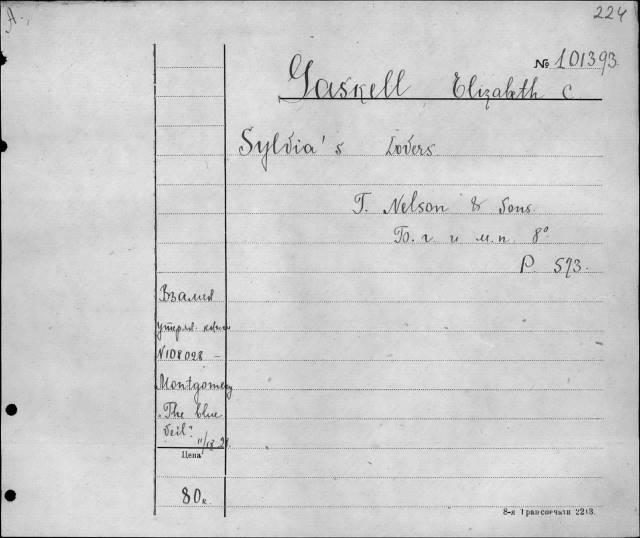 А.
224
№ 101393.
Gaskell Elizabeth C
Sylvia's Lovers.
T. Nelson & Sons.
Бо. г. и м. п. 8°
P. 593.
Взамен
утерян. книги
N108028 –
Montgomery
„The blue
veil".
Цена
80к.
8-я Транспечати 2213.